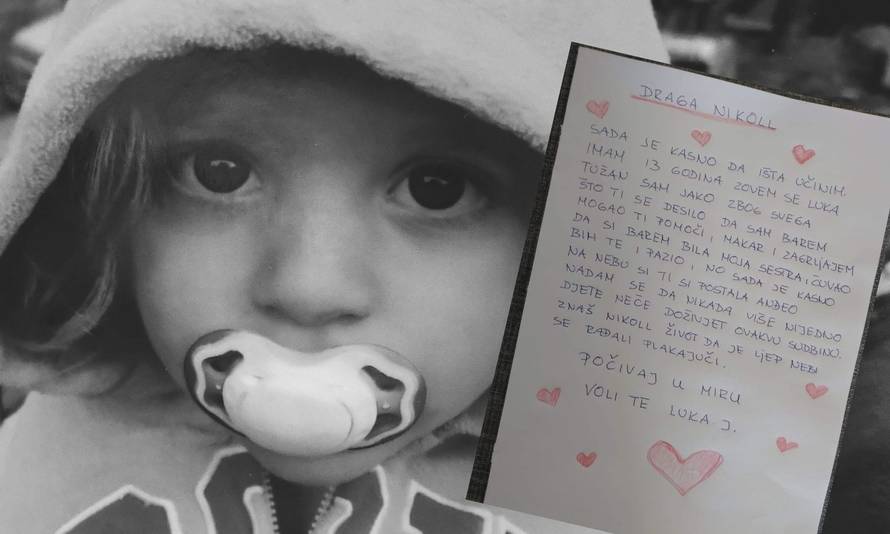 DRAGA NIKOLL
SADA JE KASNO DA IŠTA UČINIM.
IMAM 13 GODINA ZOVEM SE LUKA
TUŽAN SAM JAKO ZBOG SVEGA
ŠTO TI SE DESILO DA SAM BAREM
MOGAO TI POMOČI, MAKAR I ZAGRLJAJEM
DA SI BAREM BILA MOJA SESTRA, ČUVAO
BIH TE I PAZIO, NO SADA JE KASNO
NA NEBU SI TI SI POSTALA ANĐEO
NADAM SE DA NIKADA VIŠE NIJEDNO
DJETE NEČE DOŽIVJET OVAKVU SUDBINU.
ZNAŠ NIKOLL ŽIVOT DA JE LJEP NEBI
SE RAĐALI PLAKAJUČI.
POČIVAJ U MIRU
VOLI TE LUKA J.